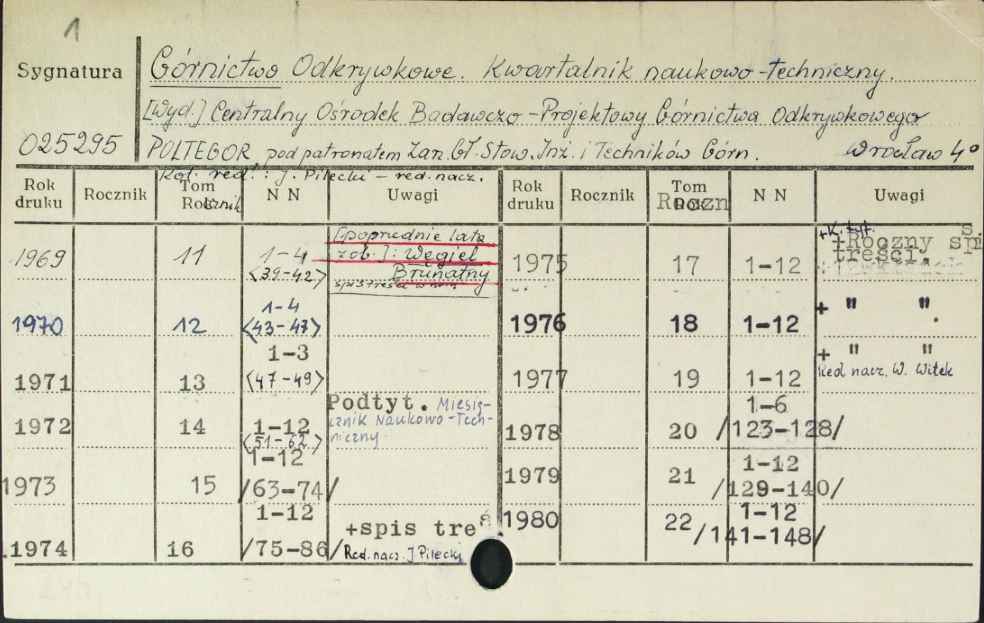 1
Sygnatura
Górnictwo Odkrywkowe. Kwartalnik naukowo-techniczny.
[Wyd.] Centralny Ośrodek Badawczo-Projektowy Górnictwa Odkrywkowego
025295
POLTEGOR pod patronatem Zarz. Gł. Stow. Inż. i Techników Górn. Wrocław 4°
Kol. red.: J. Pilecki - red. nacz.
Rok druku Rocznik Tom Rocznik N N Uwagi Rok druku Rocznik Tom Roczn N N Uwagi
1969 11 1-4 <39-42> [poprzednie lata
zob.]: Węgiel
Brunatny
1970 12 1-4 <43-47>
1971 13 1-3 <47-49>
1972 14 1-12 <51-62> Podtyt. Miesię-
cznik Naukowo-Tech-
niczny
1973 15 1-12 /63-74/
1974 16 1-12 /75-86/ +spis treś.
Red. nacz. J Pilecki
1975 17 1-12 +Roczny spis
treści.
1976 18 1-12 + " ".
1977 19 1-12 + " "
Red nacz. W. Witek
1978 20 1-6 /123-128/
1979 21 1-12 /129-140/
1980 22 1-12 /141-148/